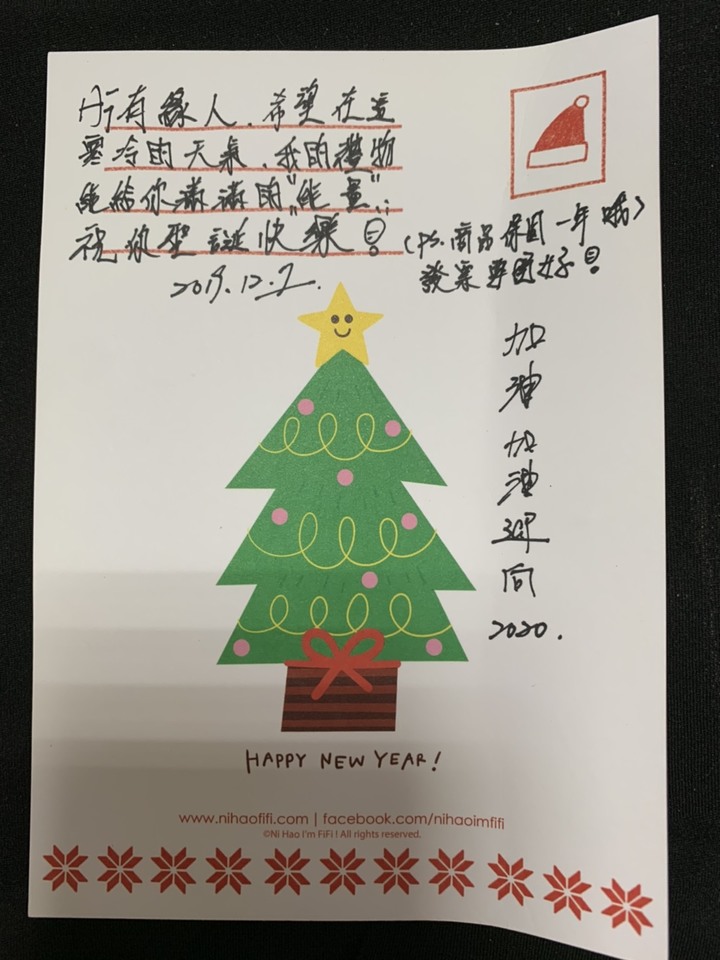 Hi有緣人，希望在這
寒冷的天氣，我的禮物
能給你滿滿的"能量"，
祝你聖誕快樂！
2019.12.
(PS.商品保固一年哦)
發票要留好！
加油加油迎向2020.
HAPPY NEW YEAR!
www.nihaofifi.com | facebook.com/nihaoimfifi
©Ni Hao I'm FiFi ! All rights reserved.